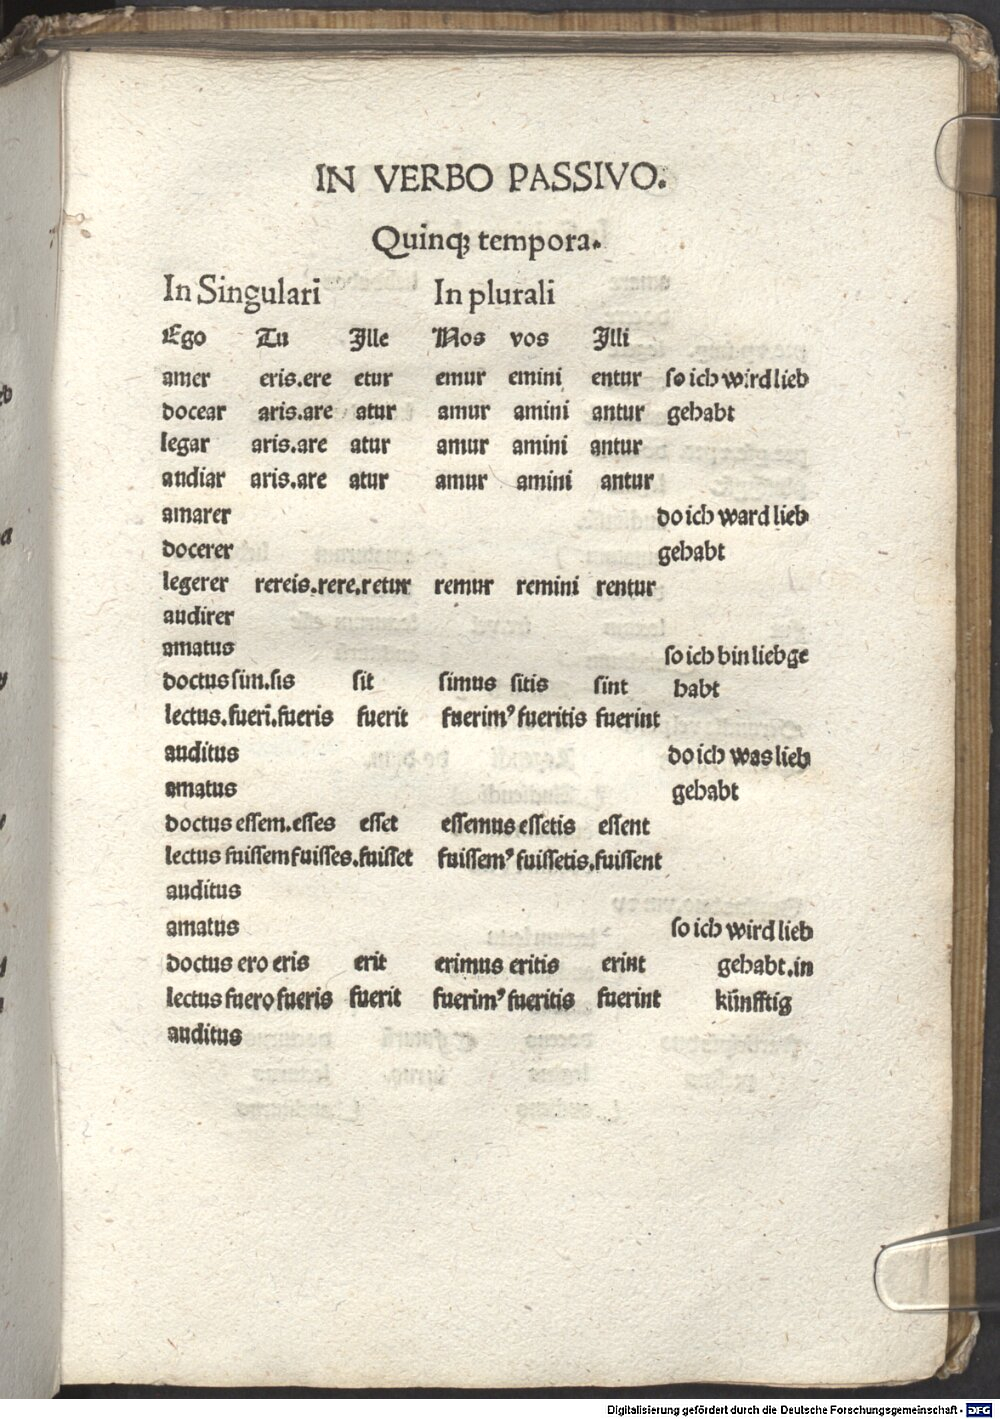 IN VERBO PASSIVO.
Quinqꝫ tempora.
In Singulari In plurali
Ego Tu Ille Nos vos Illi
amer eris.ere etur emur emini entur so ich wird lieb
docear aris.are atur amur amini antur gehabt
legar aris.are atur amur amini antur
audiar aris.are atur amur amini antur
amarer do ich ward lieb
docerer gehabt
legerer rereis.rere.retur remur remini rentur
audirer
amatus so ich bin liebge
doctus sim.sis sit simus sitis sint habt
lectus.fueri.fueris fuerit fuerimꝰ fueritis fuerint
auditus do ich was lieb
amatus gehabt
doctus essem.esses esset essemus essetis essent
lectus fuissem fuisses.fuisset fuissemꝰ fuissetis.fuissent
auditus
amatus so ich wird lieb
doctus ero eris erit erimus eritis erint gehabt.in
lectus fuero fueris fuerit fuerimꝰ fueritis fuerint künfftig
auditus
Digitalisierung gefördert durch die Deutsche Forschungsgemeinschaft - DFG